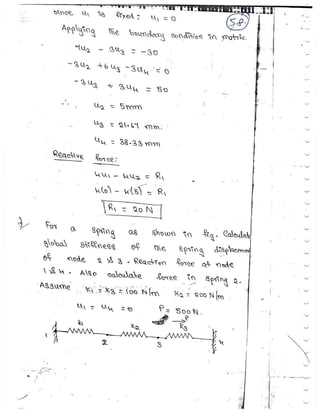 Since u₁ is fixed : u₁ = 0
5.8
Applying the boundary condition in matrix.
7u₂ - 3u₃ = -30
-3u₂ + 6u₃ - 3u₄ = 0
-3u₃ + 3u₄ = 50
∴ u₂ = 5mm
u₃ = 21.67 mm.
u₄ = 38.33 mm
Reactive force:
4u₁ - 4u₂ = R₁
4(0) - 4(5) = R₁
R₁ = 20 N
For a spring as shown in fig. Calculate
global stiffness of the spring displacement
of node 2 & 3. Reaction force at node
1 & 4. Also calculate force in spring 2.
Assume K₁ = K₃ = 100 N/m K₂ = 200 N/m
u₁ = u₄ = 0 P = 500 N.
K₁ K₂ P K₃
1 2 3 4